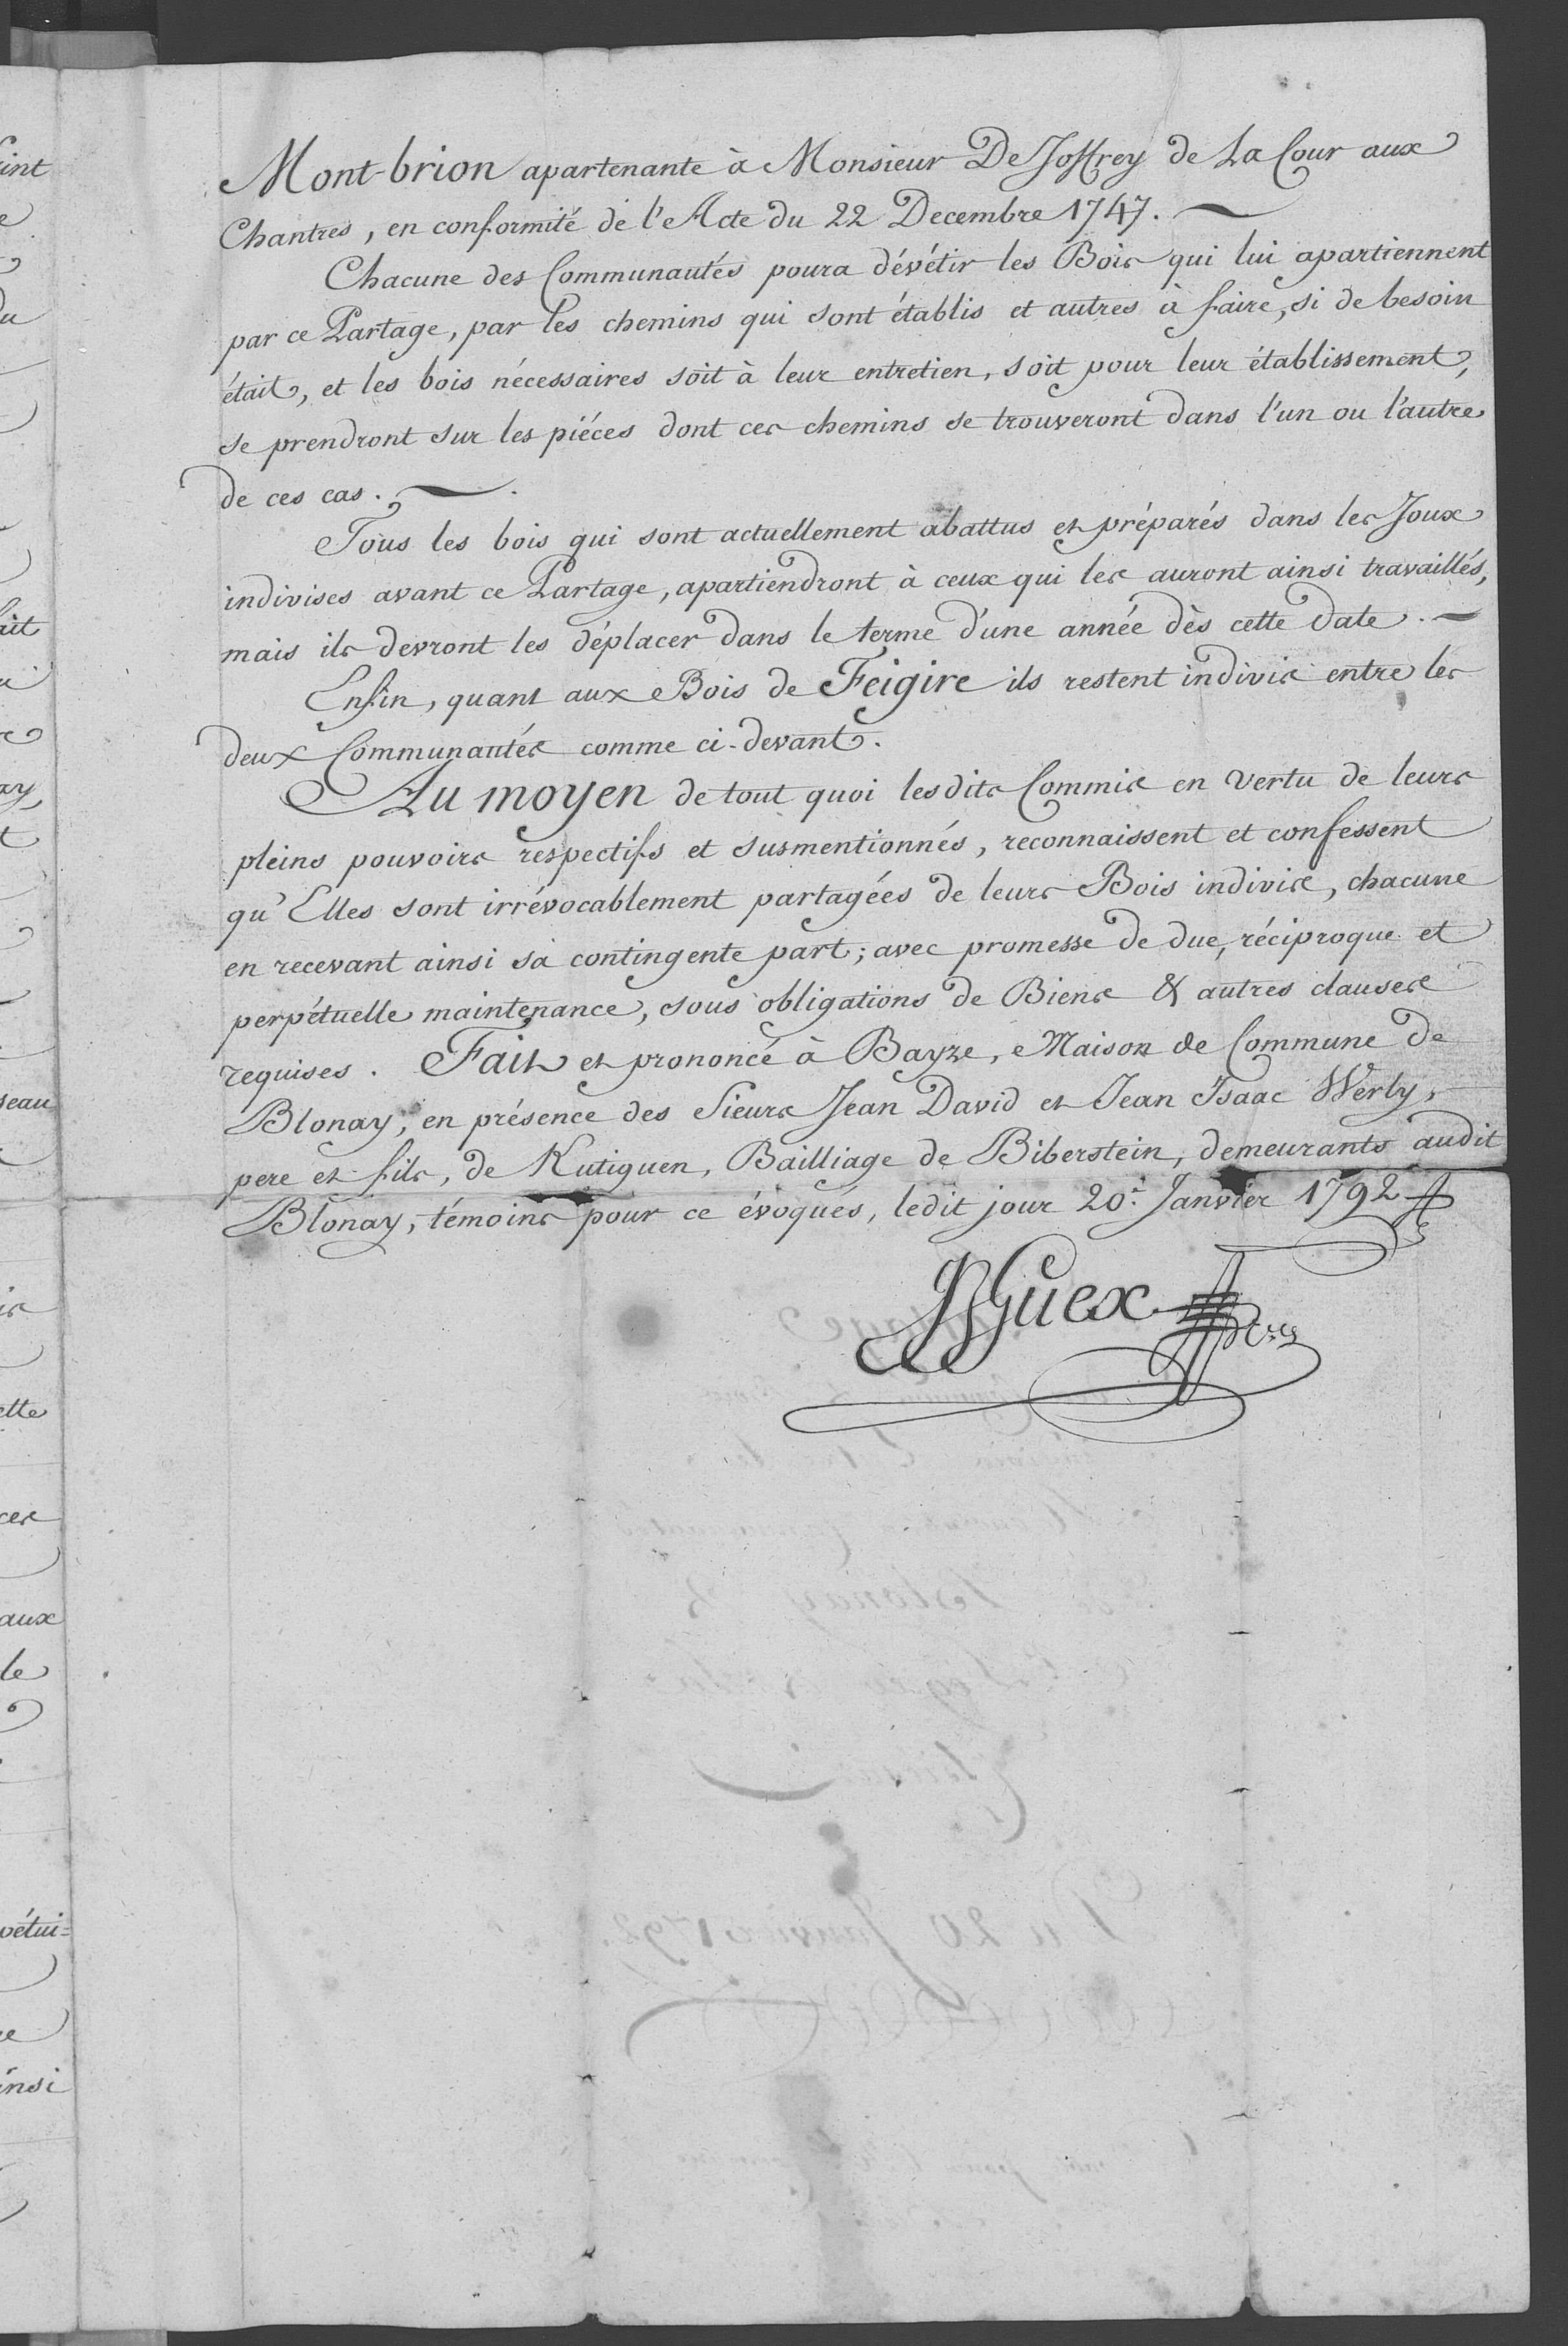 Mont-brion apartenante à Monsieur De Joffrey de La Cour aux
Chantres, en conformité de l'Acte du 22 Decembre 1747.
Chacune des Communautés poura dévétir les Bois qui lui apartiennent
par ce Partage, par les chemins qui sont établis et autres à faire, si de besoin
était, et les bois nécessaires soit à leur entretien, soit pour leur établissement,
se prendront sur les piéces dont ces chemins se trouveront dans l'un ou l'autre
de ces cas.
Tous les bois qui sont actuellement abattus et préparés dans les Joux
indivises avant ce Partage, apartiendront à ceux qui les auront ainsi travaillés,
mais ils devront les déplacer dans le terme d'une année dès cette date.
Enfin, quant aux Bois de Feigire ils restent indivis entre les
deux Communautés comme ci-devant.
Au moyen de tout quoi lesdits Commis en vertu de leurs
pleins pouvoirs respectifs et susmentionnés, reconnaissent et confessent
qu'Elles sont irrévocablement partagées de leurs Bois indivis, chacune
en recevant ainsi sa contingente part; avec promesse de due, réciproque et
perpétuelle maintenance, sous obligations de Biens & autres clauses
requises. Fait et prononcé à Bayze, Maison de Commune de
Blonay, en présence des Sieurs Jean David et Jean Isaac Werly,
pere et fils, de Kutiguen, Bailliage de Biberstein, demeurants audit
Blonay, témoins pour ce évoqués, ledit jour 20.e Janvier 1792
Guex